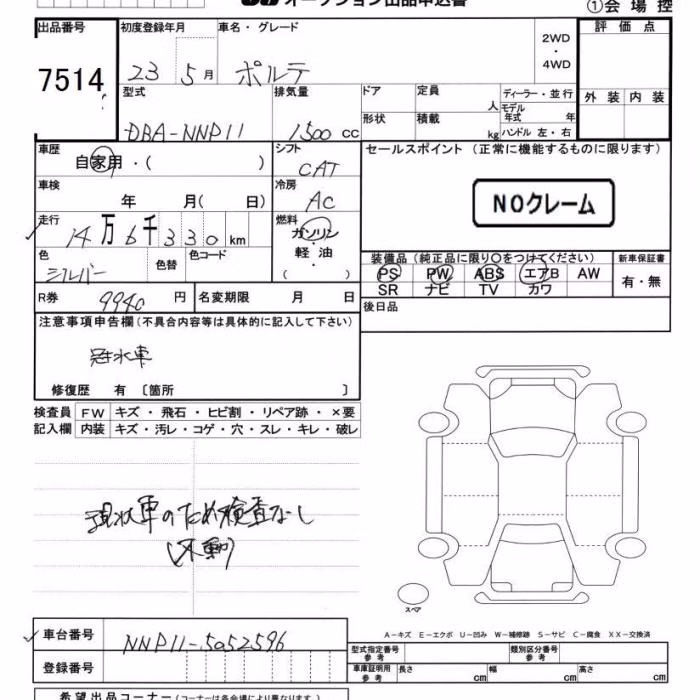 オークション出品申込書
①会場控
出品番号
7514
初度登録年月
23 5月
車名・グレード
ポルテ
2WD
・
4WD
評価点
外装 内装
型式
DBA-NNP11
排気量
1500 cc
ドア
定員
人
ディーラー・並行
形状
積載
kg
モデル年式 年
ハンドル 左・右
車歴
自家用・( )
シフト
CAT
車検
年 月( 日)
冷房
AC
走行
14万6千330km
燃料
ガソリン
・
軽油
・
( )
色
シルバー
色替
色コード
R券 9940 円
名変期限 月 日
セールスポイント(正常に機能するものに限ります)
NOクレーム
装備品(純正品に限り○をつけてください)
新車保証書
PS PW ABS エアB AW
SR ナビ TV カワ
有・無
後日品
注意事項申告欄(不具合内容等は具体的に記入して下さい)
冠水車
修復歴 有 〔箇所 〕
検査員 FW キズ・飛石・ヒビ割・リペア跡・×要
記入欄 内装 キズ・汚レ・コゲ・穴・スレ・キレ・破レ
現状車のため検査なし
(不動)
スペア
車台番号
NNP11-5052596
登録番号
A-キズ E-エクボ U-凹み W-補修跡 S-サビ C-腐食 XX-交換済
型式指定番号
参考
類別区分番号
参考
車庫証明用
参考
長さ cm
幅 cm
高さ cm
希望出品コーナー(コーナーは各会場により異なります。)